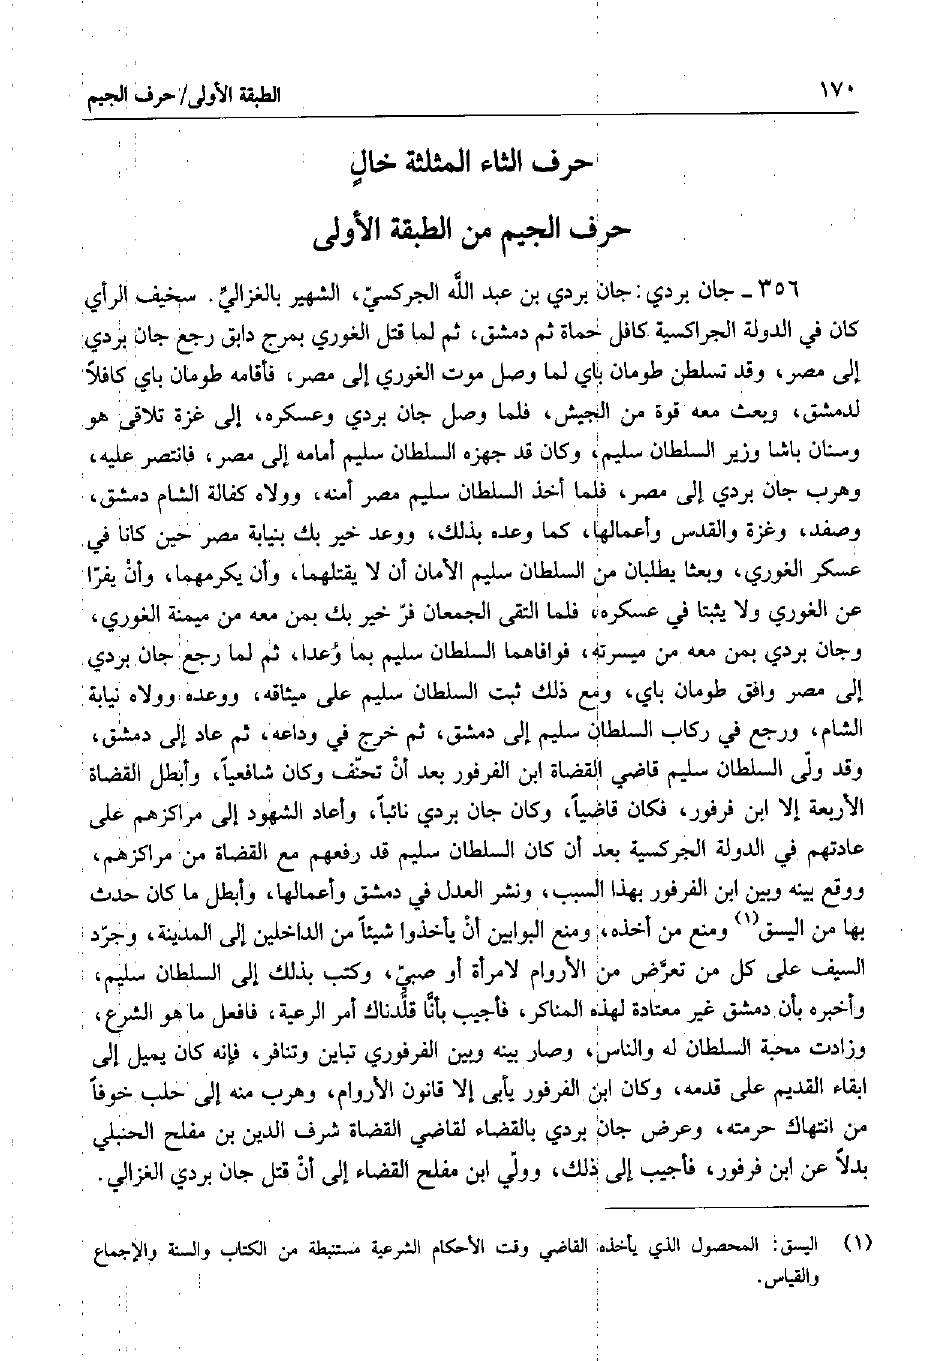 ١٧٠
الطبقة الأولى/ حرف الجيم
حرف الثاء المثلثة خالٍ
حرف الجيم من الطبقة الأولى
٣٥٦ ـ جان بردي: جان بردي بن عبد اللَّه الجركسيّ، الشهير بالغزاليّ. سخيف الرأي
كان في الدولة الجراكسية كافل حماة ثم دمشق، ثم لما قتل الغوري بمرج دابق رجع جان بردي
إلى مصر، وقد تسلطن طومان باي لما وصل موت الغوري إلى مصر، فأقامه طومان باي كافلاً
لدمشق، وبعث معه قوة من الجيش، فلما وصل جان بردي وعسكره، إلى غزة تلاقى هو
وسنان باشا وزير السلطان سليم، وكان قد جهزه السلطان سليم أمامه إلى مصر، فانتصر عليه،
وهرب جان بردي إلى مصر، فلما أخذ السلطان سليم مصر أمنه، وولاه كفالة الشام دمشق،
وصفد، وغزة والقدس وأعمالها، كما وعده بذلك، ووعد خير بك بنيابة مصر حين كانا في
عسكر الغوري، وبعثا يطلبان من السلطان سليم الأمان أن لا يقتلهما، وأن يكرمهما، وأنْ يفرّا
عن الغوري ولا يثبتا في عسكره، فلما التقى الجمعان فرّ خير بك بمن معه من ميمنة الغوري،
وجان بردي بمن معه من ميسرته، فوافاهما السلطان سليم بما وُعدا، ثم لما رجع جان بردي
إلى مصر وافق طومان باي، ومع ذلك ثبت السلطان سليم على ميثاقه، ووعده وولاه نيابة
الشام، ورجع في ركاب السلطان سليم إلى دمشق، ثم خرج في وداعه، ثم عاد إلى دمشق،
وقد ولّى السلطان سليم قاضي القضاة ابن الفرفور بعد أنْ تحنّف وكان شافعياً، وأبطل القضاة
الأربعة إلا ابن فرفور، فكان قاضياً، وكان جان بردي نائباً، وأعاد الشهود إلى مراكزهم على
عادتهم في الدولة الجركسية بعد أن كان السلطان سليم قد رفعهم مع القضاة من مراكزهم،
ووقع بينه وبين ابن الفرفور بهذا السبب، ونشر العدل في دمشق وأعمالها، وأبطل ما كان حدث
بها من اليسق(١) ومنع من أخذه، ومنع البوابين أنْ يأخذوا شيئاً من الداخلين إلى المدينة، وجرّد
السيف على كل من تعرَّض من الأروام لامرأة أو صبيّ، وكتب بذلك إلى السلطان سليم،
وأخبره بأن دمشق غير معتادة لهذه المناكر، فأجيب بأنَّا قلَّدناك أمر الرعية، فافعل ما هو الشرع،
وزادت محبة السلطان له والناس، وصار بينه وبين الفرفوري تباين وتنافر، فإنه كان يميل إلى
ابقاء القديم على قدمه، وكان ابن الفرفور يأبى إلا قانون الأروام، وهرب منه إلى حلب خوفاً
من انتهاك حرمته، وعرض جان بردي بالقضاء لقاضي القضاة شرف الدين بن مفلح الحنبلي
بدلاً عن ابن فرفور، فأجيب إلى ذلك، وولّي ابن مفلح القضاء إلى أنْ قتل جان بردي الغزالي.
(١) اليسق: المحصول الذي يأخذه القاضي وقت الأحكام الشرعية مستنبطة من الكتاب والسنة والإجماع
والقياس.